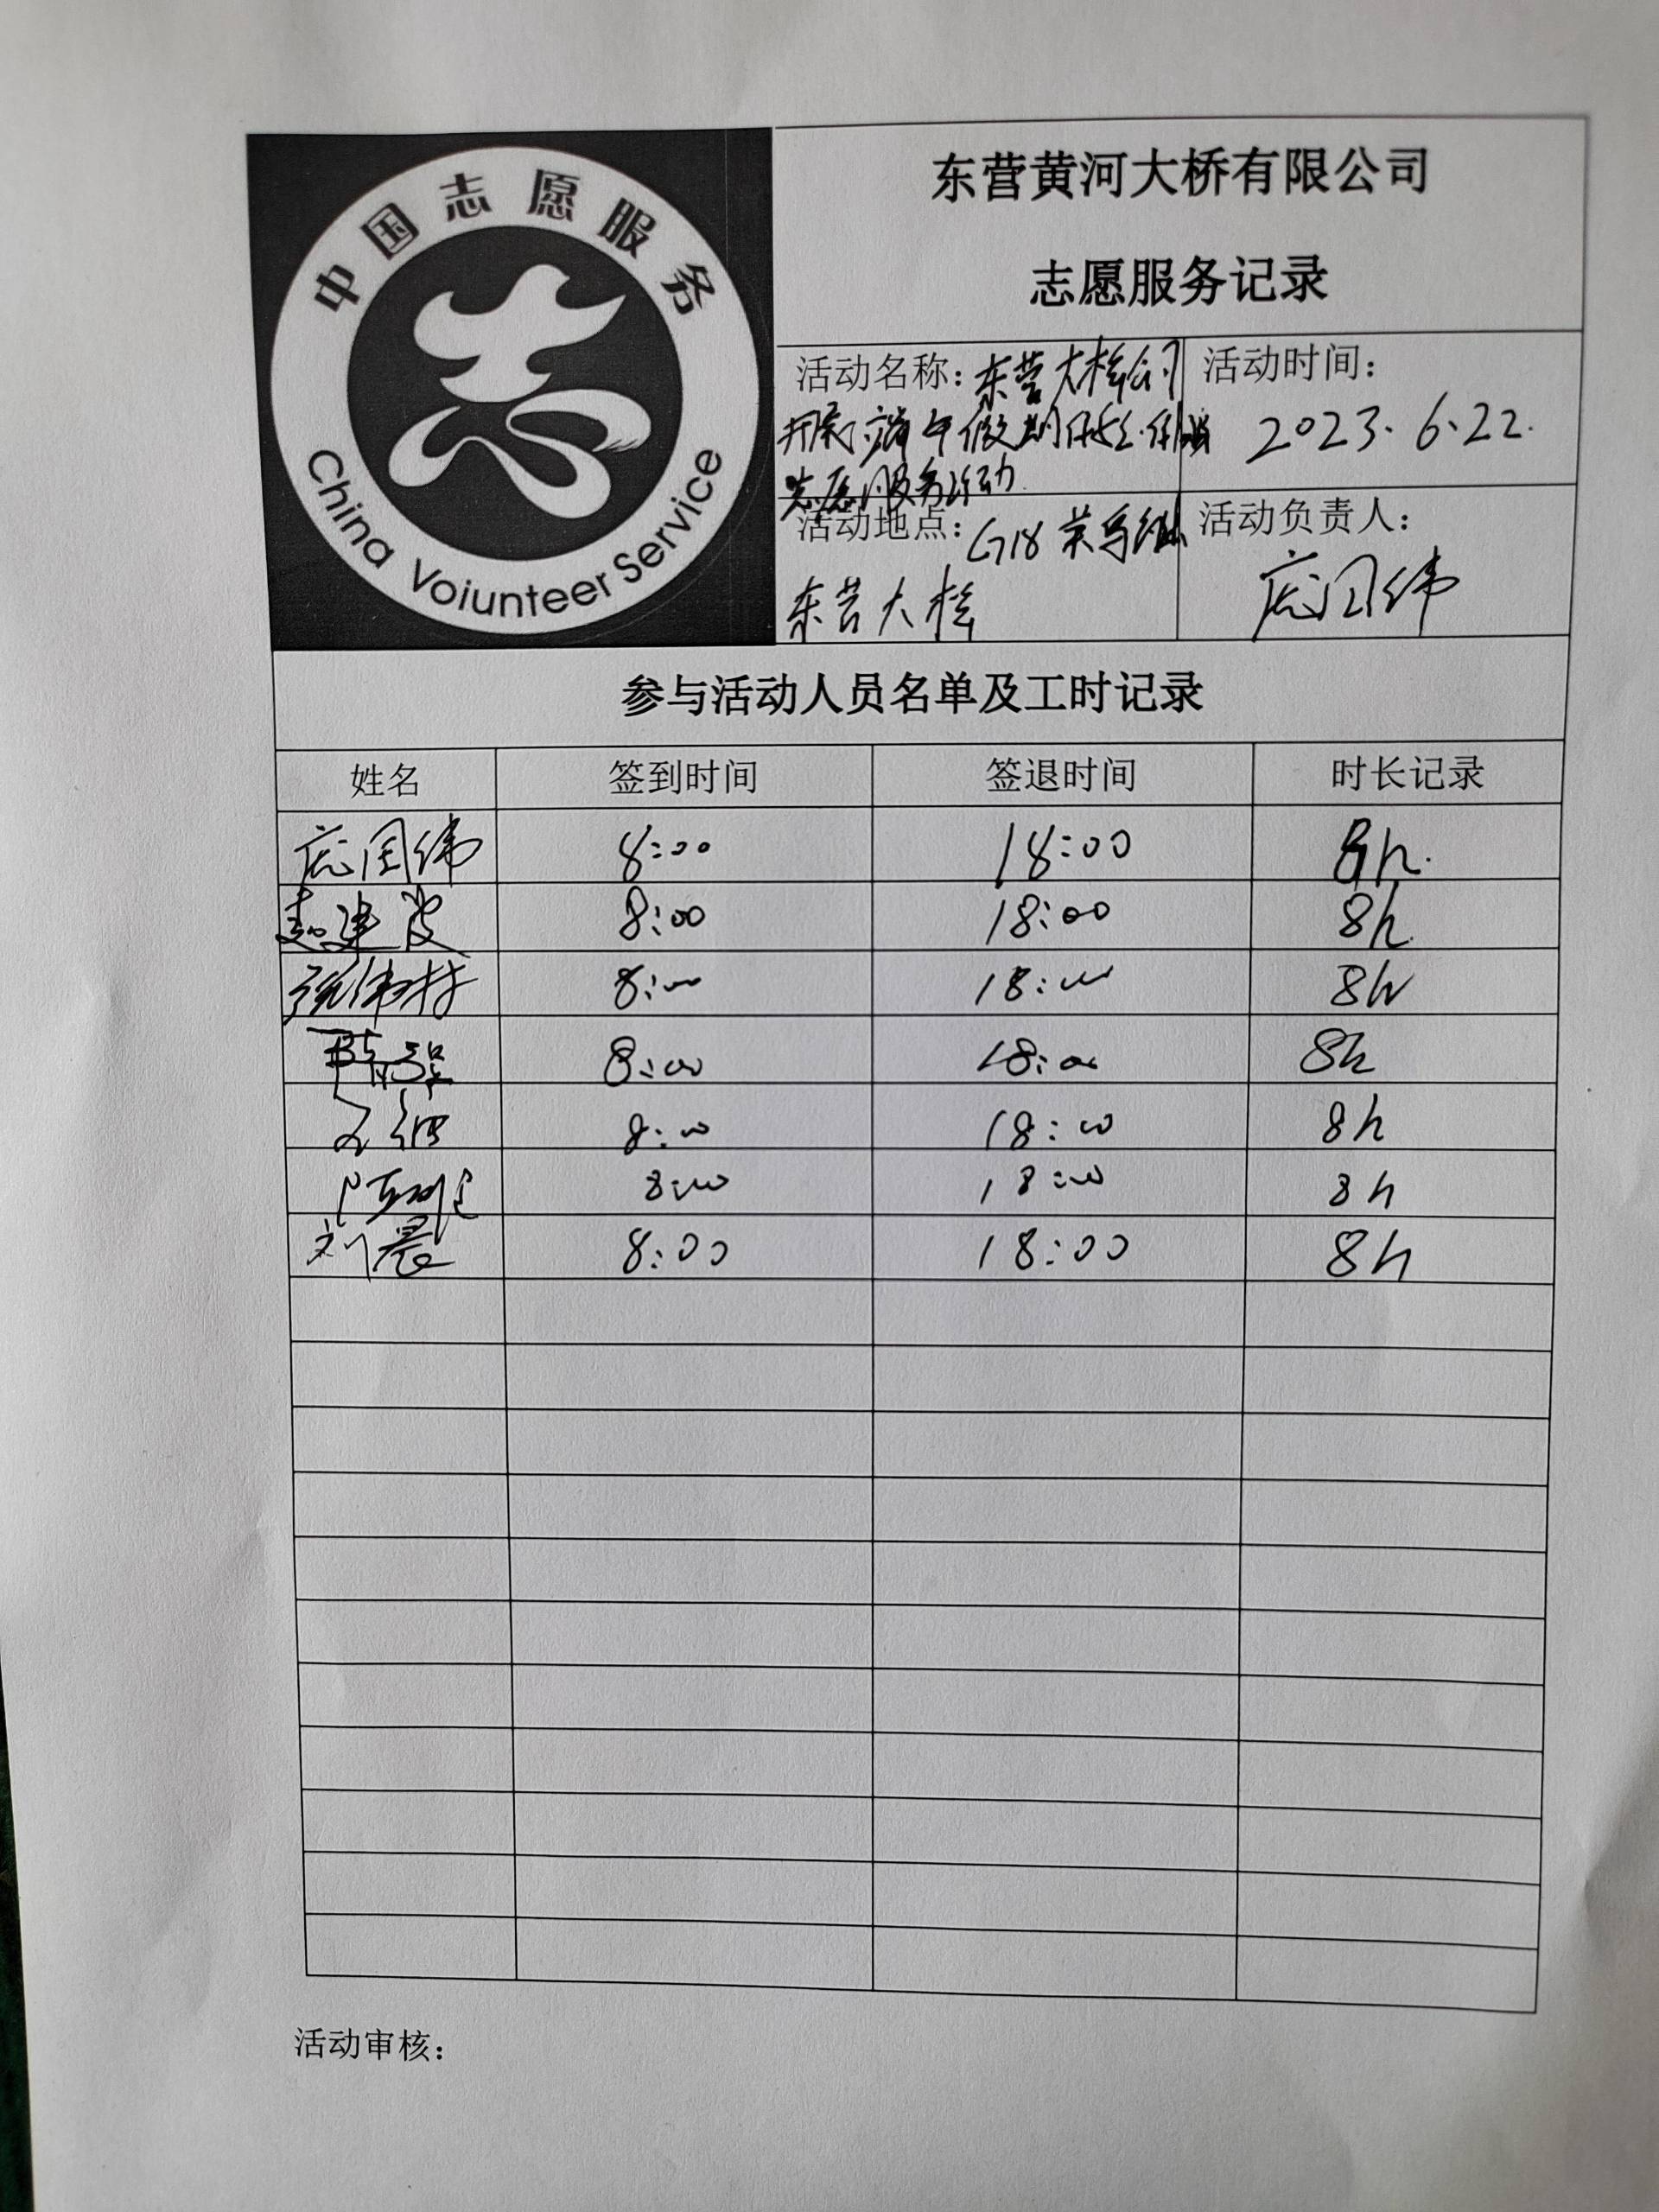 中国志愿服务
China Voiunteer Service
东营黄河大桥有限公司
志愿服务记录
活动名称：东营大桥公司
开展端午假期保安保畅
志愿服务活动
活动时间：
2023.6.22.
活动地点：G18荣乌线
东营大桥
活动负责人：
庞国伟
参与活动人员名单及工时记录
姓名 签到时间 签退时间 时长记录
庞国伟 8:00 18:00 8h.
建波 8:00 18:00 8h.
张伟村 8:00 18:00 8h
8:00 18:00 8h
8:00 18:00 8h
8:00 18:00 8h
刘晨 8:00 18:00 8h
活动审核：